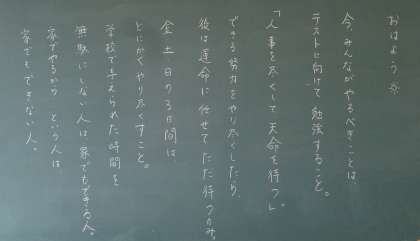 おはよう☆
今、みんながやるべきことは、
テストに向けて勉強すること。
「人事を尽くして天命を待つ」。
できる努力をやり尽くしたら、
後は運命に任せてただ待つのみ。
金土日の3日間は
とにかくやり尽くすこと。
学校で与えられた時間を
無駄にしない人は家でもできる人。
家でやるから、という人は、
家でもできない人。